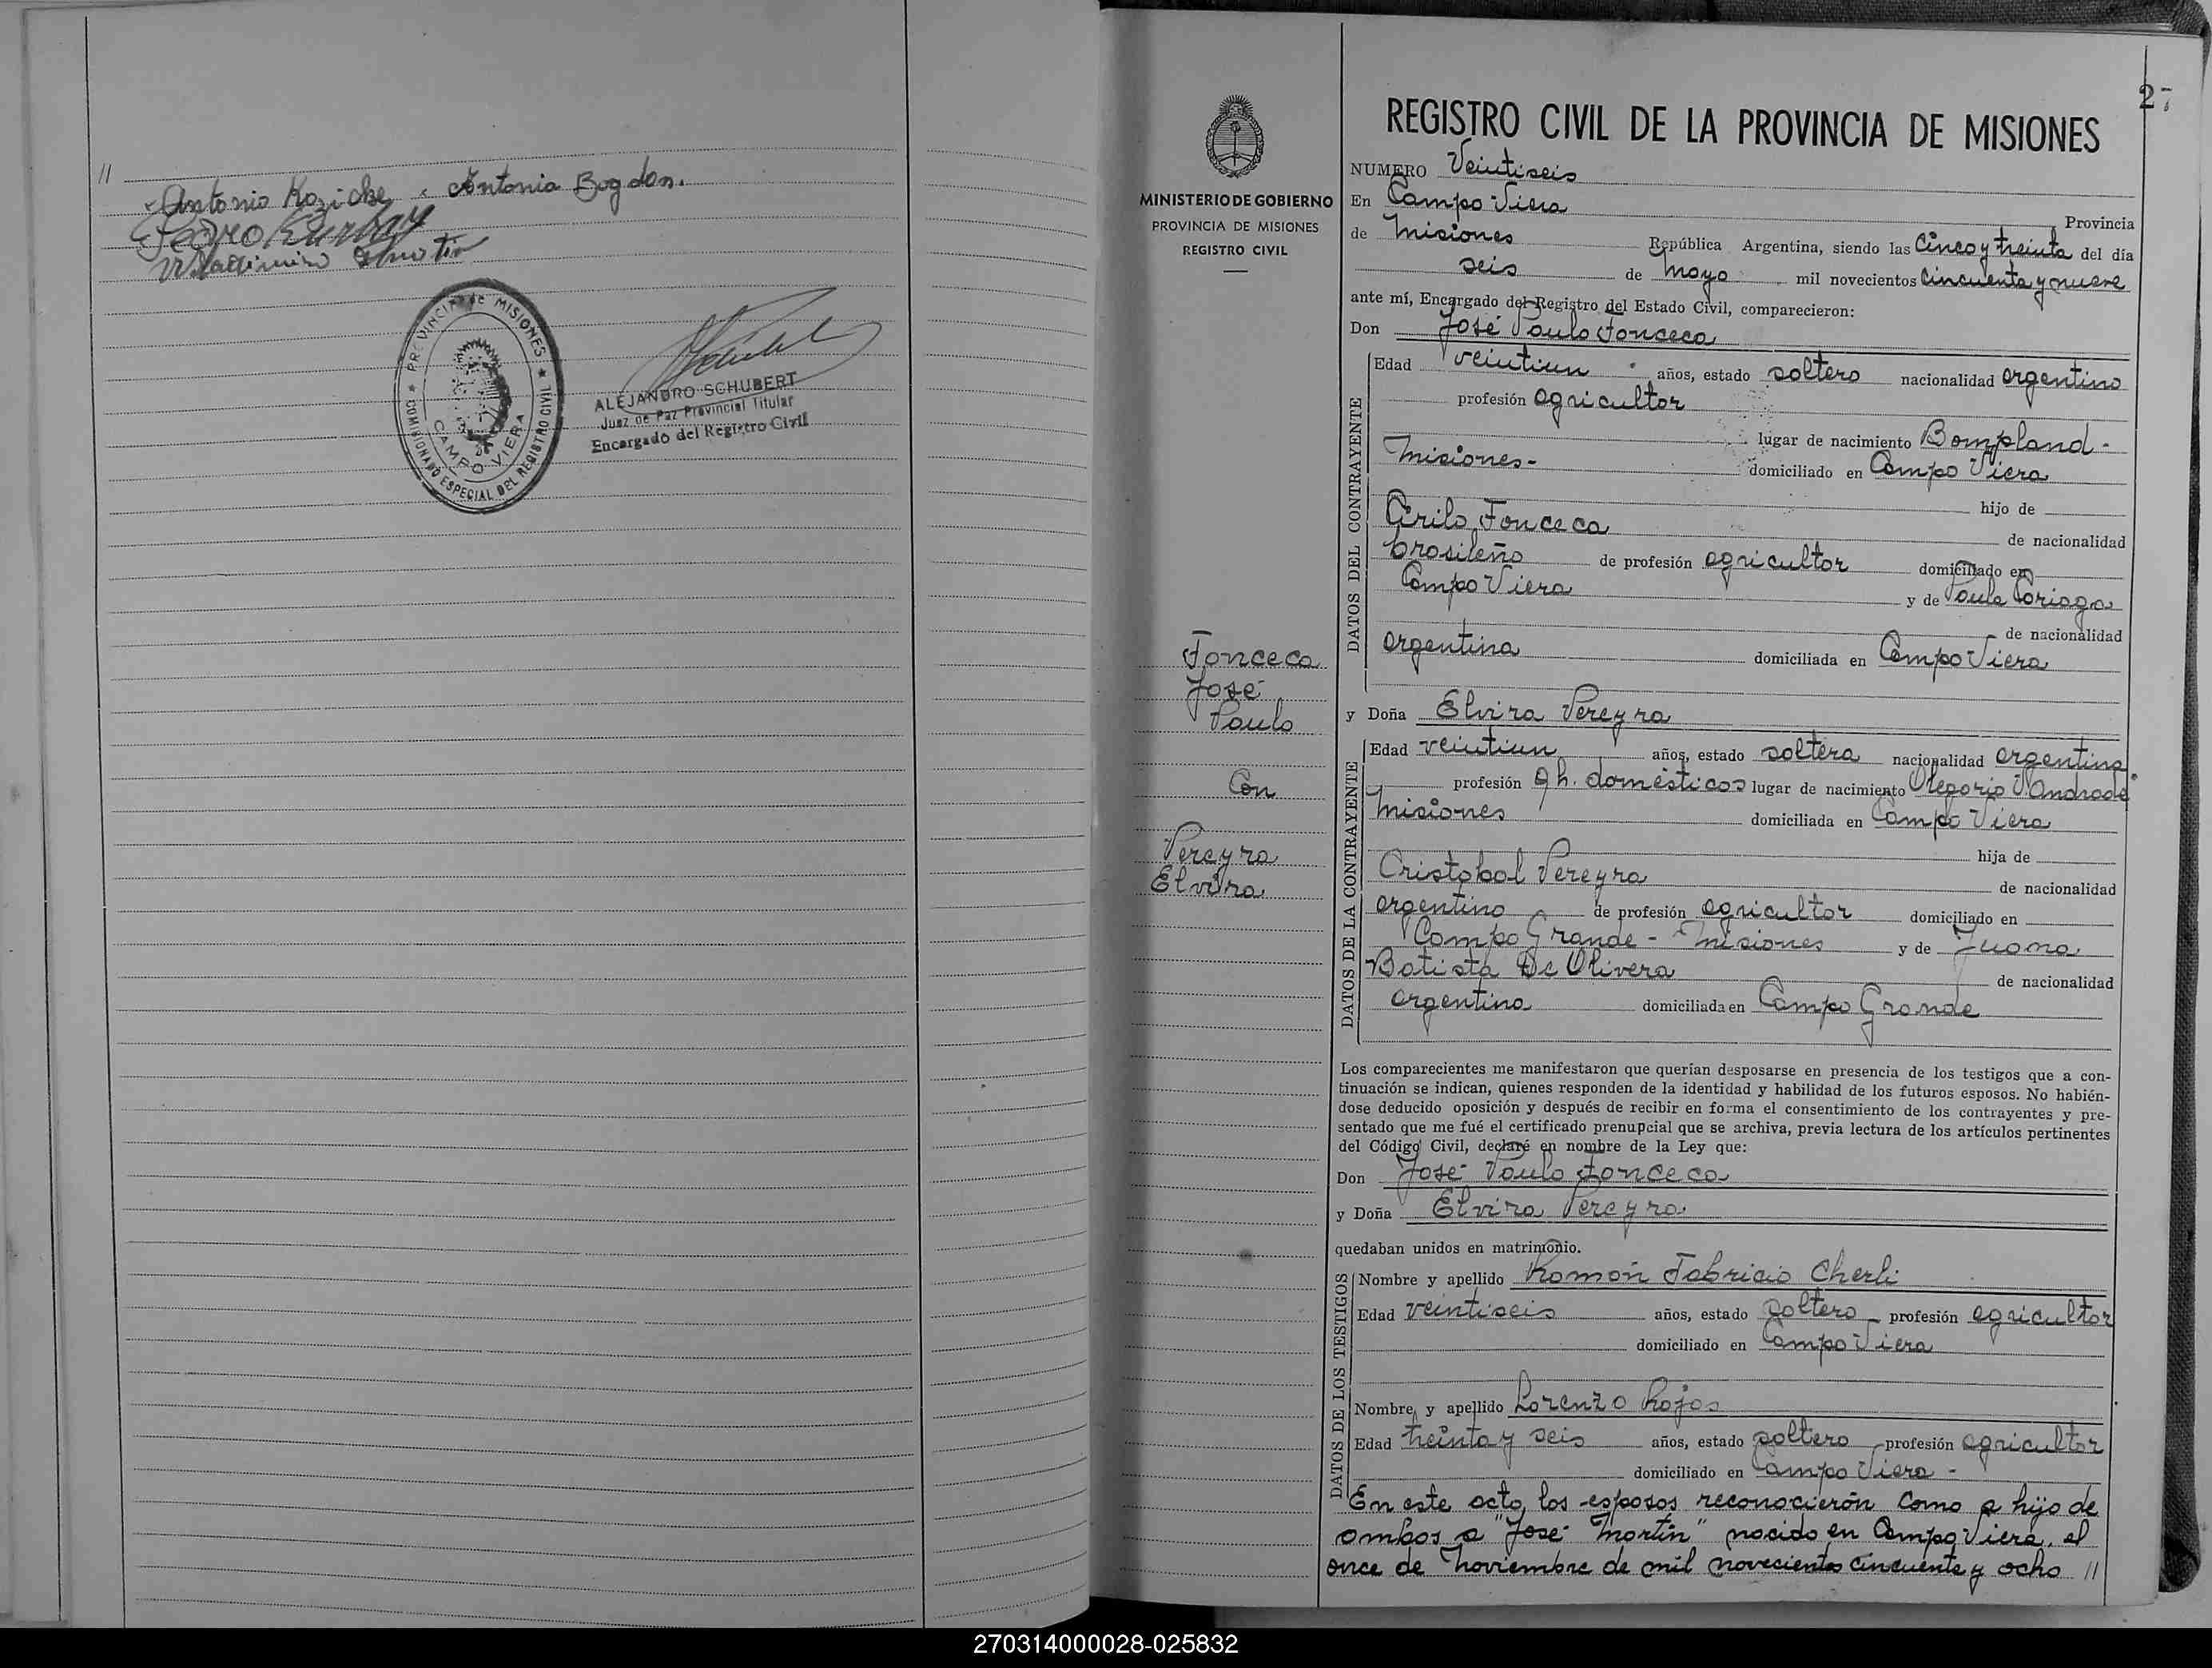 //
Antonio Kozicke
Antonia Bogdan.
Pedro
PROVINCIA de MISIONES
COMISIONADO ESPECIAL DEL REGISTRO CIVIL
CAMPO VIERA
ALEJANDRO SCHUBERT
Juez de Paz Provincial Titular
Encargado del Registro Civil
27
MINISTERIO DE GOBIERNO
PROVINCIA DE MISIONES
REGISTRO CIVIL
Fonceca
José
Paulo
Con
Pereyra
Elvira
REGISTRO CIVIL DE LA PROVINCIA DE MISIONES
NUMERO Veintiseis
En Campo Viera Provincia
de Misiones República Argentina, siendo las Cinco y treinta del día
seis de Mayo, mil novecientos Cincuenta y nueve
ante mí, Encargado del Registro del Estado Civil, comparecieron:
Don José Paulo Fonceca
DATOS DEL CONTRAYENTE
Edad veintiun años, estado soltero nacionalidad argentino
profesión agricultor
lugar de nacimiento Bompland -
Misiones- domiciliado en Campo Viera
hijo de
Cirilo Fonceca de nacionalidad
brasileño de profesión agricultor domiciliado en
Campo Viera y de Paula Coriaga
de nacionalidad
argentina domiciliada en Campo Viera
y Doña Elvira Pereyra
DATOS DE LA CONTRAYENTE
Edad veintiun años, estado soltera nacionalidad argentina
profesión qh. domésticos lugar de nacimiento Olegario V Andrade
Misiones domiciliada en Campo Viera
hija de
Cristobal Pereyra de nacionalidad
argentino de profesión agricultor domiciliado en
Campo Grande - Misiones y de Juana
Batista De Olivera de nacionalidad
argentina domiciliada en Campo Grande
Los comparecientes me manifestaron que querían desposarse en presencia de los testigos que a con-
tinuación se indican, quienes responden de la identidad y habilidad de los futuros esposos. No habién-
dose deducido oposición y después de recibir en forma el consentimiento de los contrayentes y pre-
sentado que me fué el certificado prenupcial que se archiva, previa lectura de los artículos pertinentes
del Código Civil, declaré en nombre de la Ley que:
Don José Paulo Fonceca
y Doña Elvira Pereyra
quedaban unidos en matrimonio.
DATOS DE LOS TESTIGOS
Nombre y apellido Ramón Fabricio Cherli
Edad veintiseis años, estado soltero profesión agricultor
domiciliado en Campo Viera
Nombre y apellido Lorenzo Rojas
Edad treinta y seis años, estado soltero profesión agricultor
domiciliado en Campo Viera -
En este acto, los esposos reconocierón como a hijo de
ambos a "José Martín" nacido en Campo Viera, el
once de Noviembre de mil novecientos cincuenta y ocho //
270314000028-025832